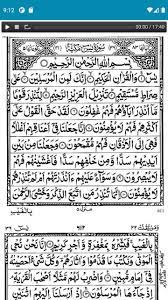 9:12
00:00 / 17:40
سورة يس مكية
بِسْمِ اللهِ الرَّحْمٰنِ الرَّحِيْمِ
يٰسٓ وَالْقُرْاٰنِ الْحَكِيْمِ اِنَّكَ لَمِنَ الْمُرْسَلِيْنَ عَلٰى
صِرَاطٍ مُّسْتَقِيْمٍ تَنْزِيْلَ الْعَزِيْزِ الرَّحِيْمِ لِتُنْذِرَ قَوْمًا
مَّآ اُنْذِرَ اٰبَآؤُهُمْ فَهُمْ غٰفِلُوْنَ لَقَدْ حَقَّ الْقَوْلُ عَلٰٓى
اَكْثَرِهِمْ فَهُمْ لَا يُؤْمِنُوْنَ اِنَّا جَعَلْنَا فِيْٓ اَعْنَاقِهِمْ اَغْلٰلًا
فَهِيَ اِلَى الْاَذْقَانِ فَهُمْ مُّقْمَحُوْنَ وَجَعَلْنَا مِنْۢ بَيْنِ
اَيْدِيْهِمْ سَدًّا وَّمِنْ خَلْفِهِمْ سَدًّا فَاَغْشَيْنٰهُمْ فَهُمْ
لَا يُبْصِرُوْنَ وَسَوَآءٌ عَلَيْهِمْ ءَاَنْذَرْتَهُمْ اَمْ لَمْ تُنْذِرْهُمْ
لَا يُؤْمِنُوْنَ اِنَّمَا تُنْذِرُ مَنِ اتَّبَعَ الذِّكْرَ وَخَشِيَ الرَّحْمٰنَ
بِالْغَيْبِ
بِالْغَيْبِ فَبَشِّرْهُ بِمَغْفِرَةٍ وَّاَجْرٍ كَرِيْمٍ اِنَّا نَحْنُ نُحْيِ
الْمَوْتٰى وَنَكْتُبُ مَا قَدَّمُوْا وَاٰثَارَهُمْ وَكُلَّ شَيْءٍ اَحْصَيْنٰهُ
فِيْٓ اِمَامٍ مُّبِيْنٍ وَاضْرِبْ لَهُمْ مَّثَلًا اَصْحٰبَ الْقَرْيَةِ
اِذْ جَآءَهَا الْمُرْسَلُوْنَ اِذْ اَرْسَلْنَآ اِلَيْهِمُ اثْنَيْنِ